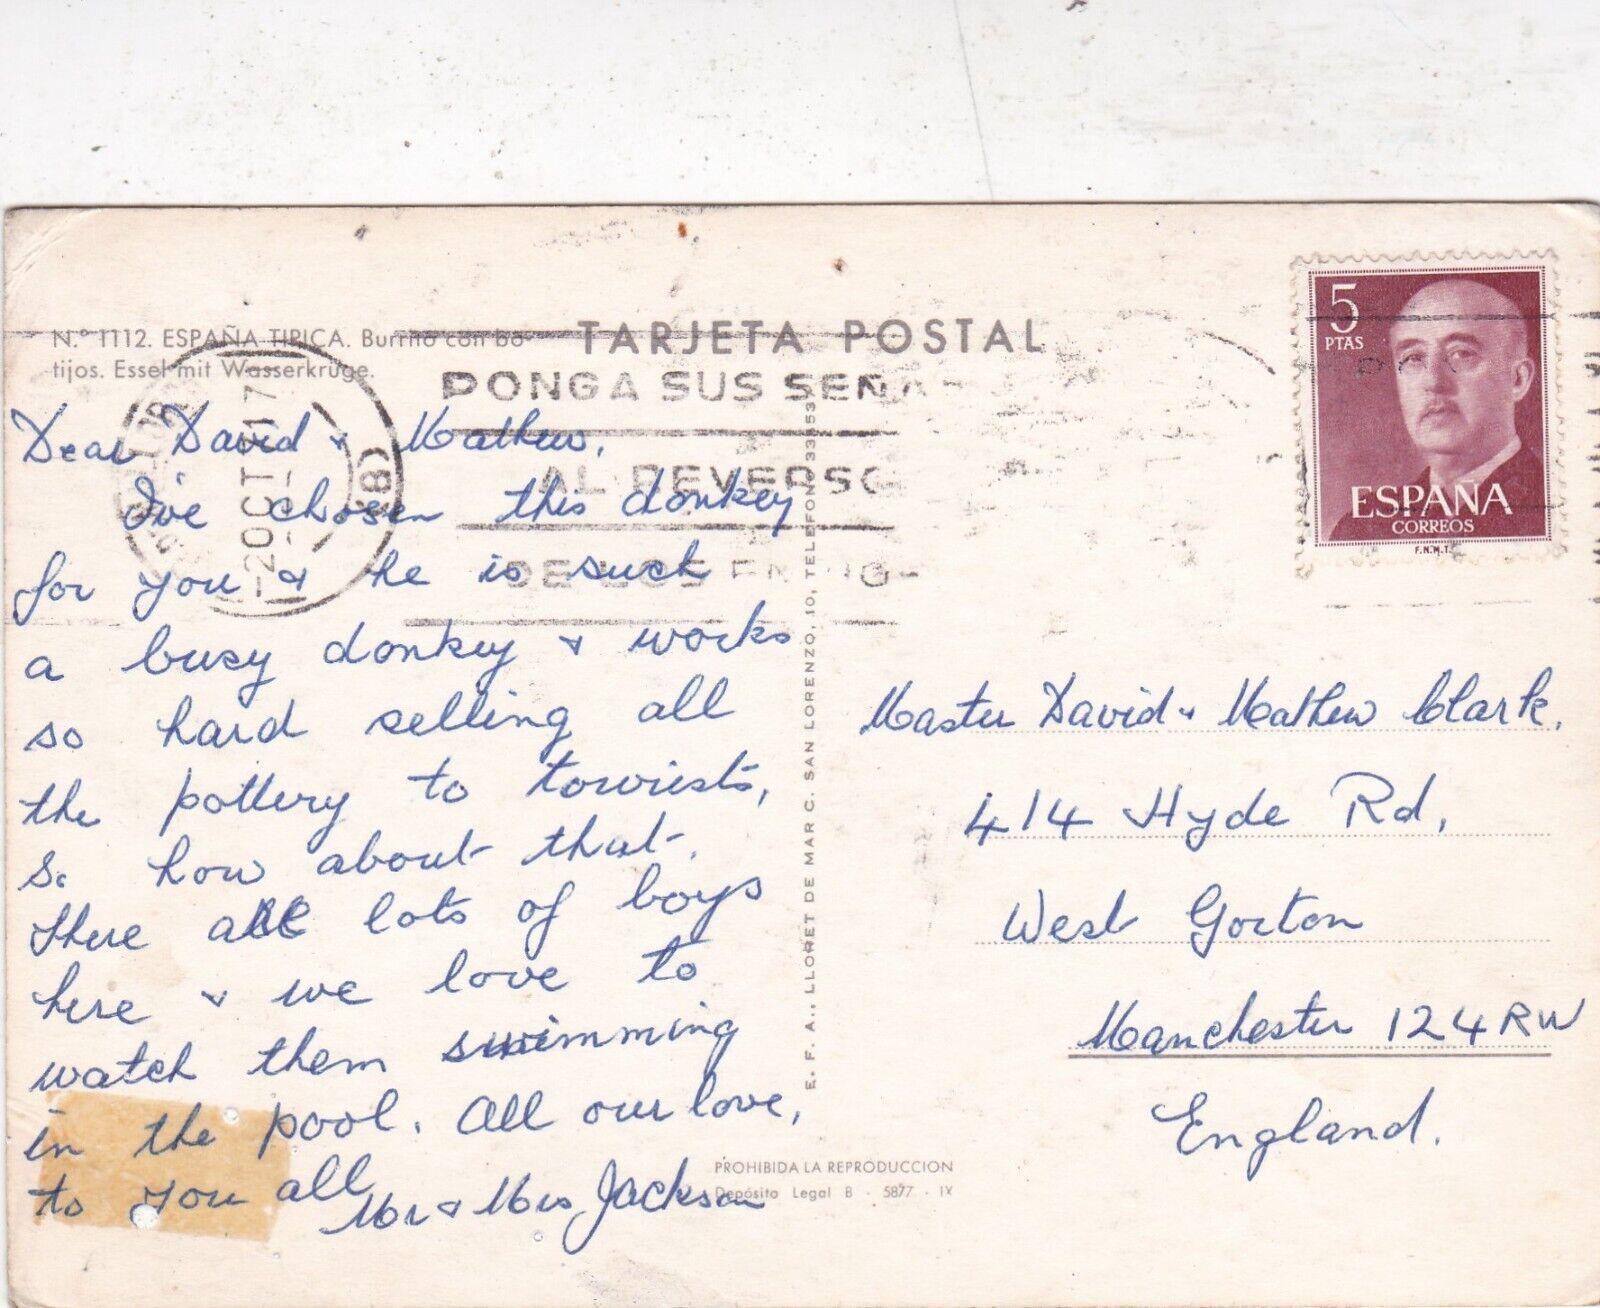 N.º 1112. ESPAÑA TIPICA. Burrito con bo-
tijos. Essel mit Wasserkrüge.
TARJETA POSTAL
PONGA SUS SEÑAS
AL REVERSO
DE LOS
-2OCT
(8)
5
PTAS
ESPAÑA
CORREOS
F.N.M.T.
Dear David & Mathew,
I've chosen this donkey
for you & he is such
a busy donkey & works
so hard selling all
the pottery to tourists,
so how about that.
There are lots of boys
here & we love to
watch them swimming
in the pool. All our love,
to you all
Mr & Mrs Jackson
E. F. A., LLORET DE MAR C. SAN LORENZO, 10, TELEFONO
Master David & Mathew Clark.
414 Hyde Rd,
West Gorton
Manchester 124RW
England.
PROHIBIDA LA REPRODUCCION
Depósito Legal B - 5877 - IX